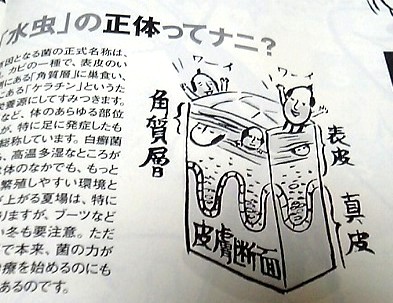 「水虫」の正体ってナニ?
因となる菌の正式名称は、
、カビの一種で、表皮のい
にある「角質層」に巣食い、
にある「ケラチン」というた
で養源にしてすみつきます。
など、体のあらゆる部位
が、特に足に発症したも
総称しています。白癬菌
、高温多湿なところが
は体のなかでも、もっと
繁殖しやすい環境と
が上がる夏場は、特に
りますが、ブーツなど
い冬も要注意。ただ
で本来、菌の力が
治療を始めるのにも
あるのです。
ワーイ
ワーイ
角質層
表皮
真皮
皮膚断面